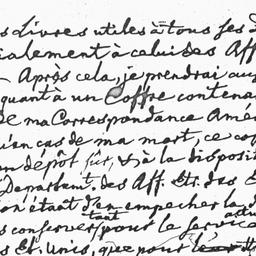 s Livres utiles à tous ses D
ialement à celui des Aff
- Après cela, je prendrai auss
quant à un Coffre contena
de ma Correspondance Amé
qu'en cas de ma mort, ce cof
un dépôt sûr, & à la disposit
Départemt. des Aff. Etr. des E
on étant d'en empecher la d
tant
s conserver pour le service
s Et. Unis, que pour le